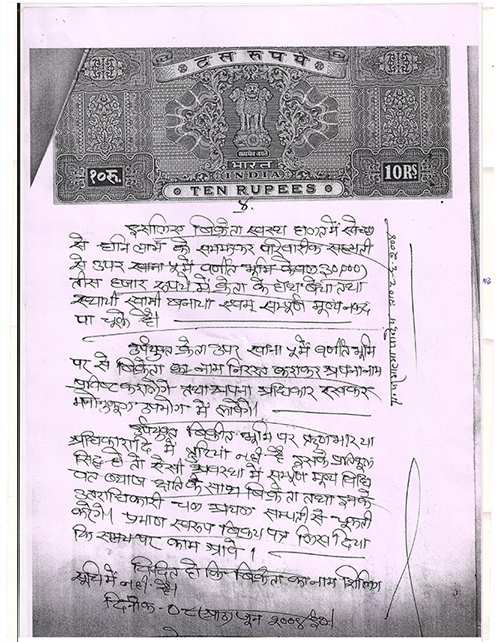 दस रुपये
सत्यमेव जयते
१०रु.
भारत
INDIA
10RS
TEN RUPEES
४.
इसलिए बिक्रेता स्वस्थ हालत में स्वेच्छा
से हानि लाभ को समझकर पारिवारीक सहमती
से उपर खाना ५ में वर्णीत भूमि केवल ३०,०००)
तीस हजार रुपये में क्रेता के हाथ बेचा तथा
स्थायी स्वामी बनाया रकम सम्पूर्ण मूल्य नकद
पा चूके है।
उपर्युक्त क्रेता उपर खाना ५ में वर्णीत भूमि
पर से बिक्रेता का नाम निरस्त कराकर अपना नाम
प्रविष्ट करालेंगे तथा अपना अधिकार रखकर
मनोनुकूल उपभोग में लावेंगे।
उपर्युक्त बिक्रीत भूमि पर ऋणभार या
अधिकारादि में त्रुटियां नहीं है इसके प्रतिकूल
सिद्ध हो तो ऐसी अवस्था में सम्पूर्ण मूल्य विधि
वत ब्याज क्षति के साथ बिक्रेता तथा इनके
उतराधिकारी चल अचल सम्पती से चूकती
करेंगे। प्रमाण स्वरूप बिक्रय पत्र लिख दिया
कि समय पर काम आवे।
विदित हो कि बिक्रेता का नाम सिलिंग
सूचि में नहीं है।
दिनांक- ०८ (आठ) जून २००४ ई०।